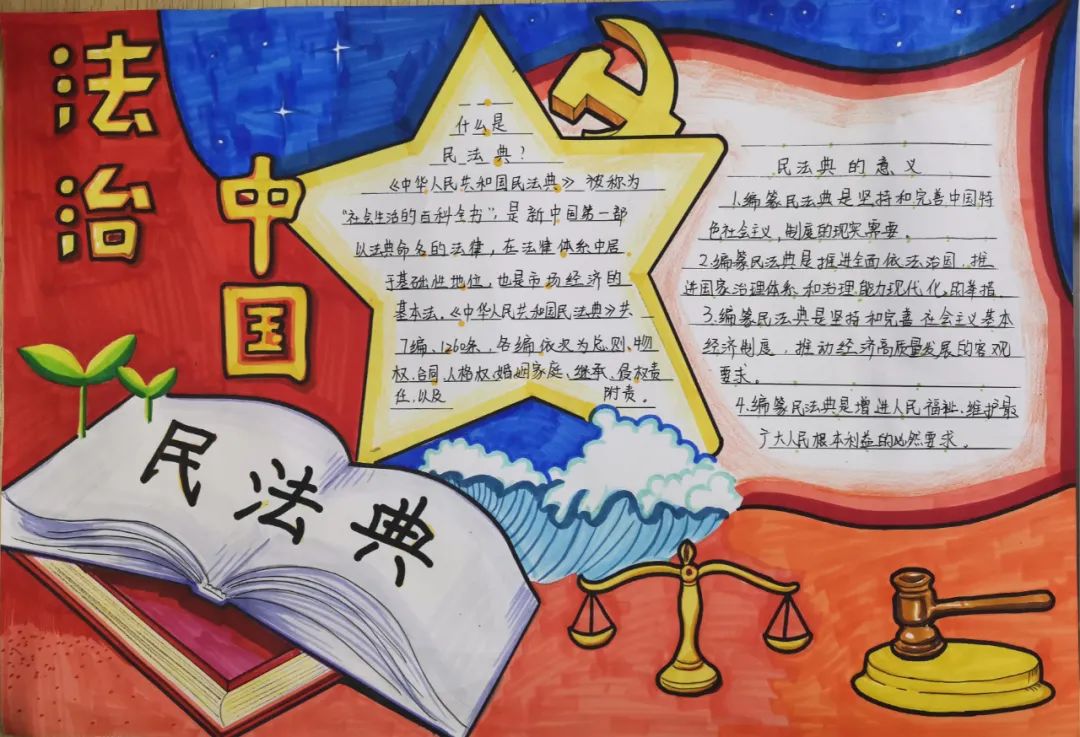 法治
中国
什么是
民法典？
《中华人民共和国民法典》被称为
“社会生活的百科全书”，是新中国第一部
以法典命名的法律，在法律体系中居
于基础性地位，也是市场经济的
基本法。《中华人民共和国民法典》共
7编、1260条，各编依次为总则、物
权、合同、人格权、婚姻家庭、继承、侵权责
任，以及 附责。
民法典的意义
1.编纂民法典是坚持和完善中国特
色社会主义，制度的现实需要。
2.编纂民法典是推进全面依法治国，推
进国家治理体系和治理能力现代化的举措
3.编纂民法典是坚持和完善社会主义基本
经济制度，推动经济高质量发展的客观
要求。
4.编纂民法典是增进人民福祉、维护最
广大人民根本利益的必然要求。
民法典